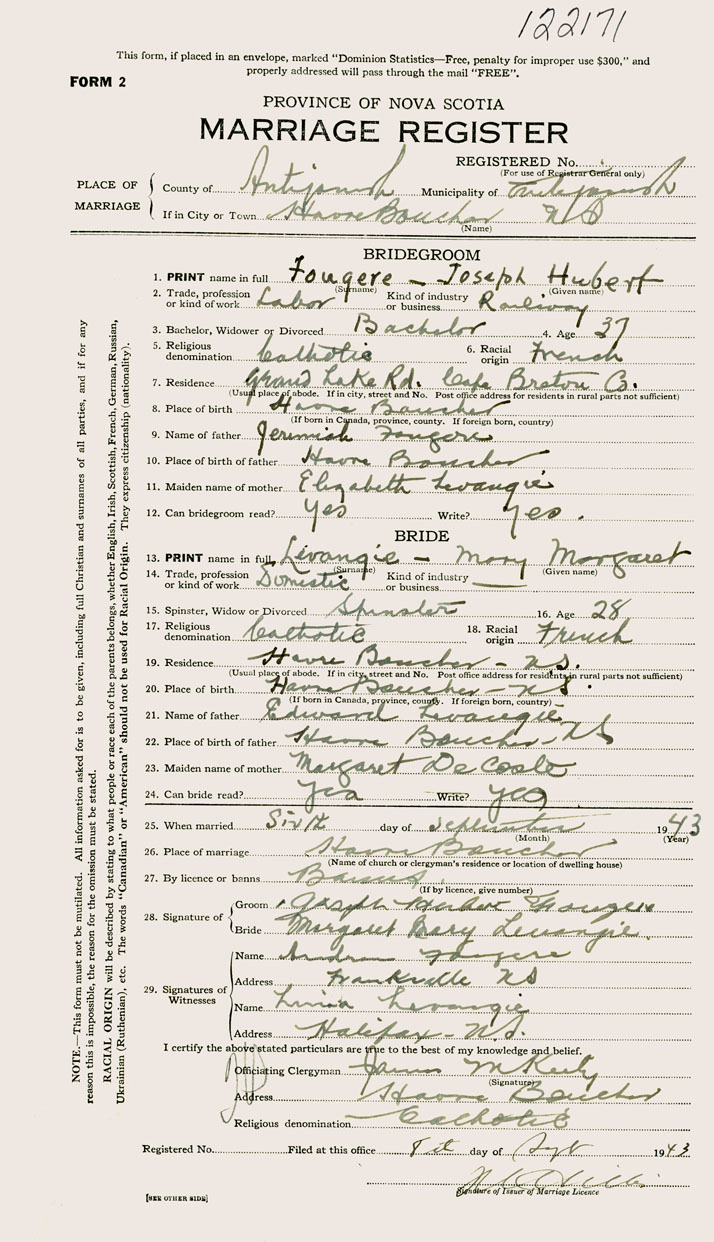 122171
This form, if placed in an envelope, marked "Dominion Statistics—Free, penalty for improper use $300," and
properly addressed will pass through the mail "FREE".
FORM 2
PROVINCE OF NOVA SCOTIA
MARRIAGE REGISTER
REGISTERED No.
(For use of Registrar General only)
PLACE OF MARRIAGE
County of Antigonish Municipality of Antigonish
If in City or Town Havre Boucher N S
(Name)
BRIDEGROOM
1. PRINT name in full Fougere — Joseph Hubert
(Surname) (Given name)
2. Trade, profession or kind of work Labor Kind of industry or business Railway
3. Bachelor, Widower or Divorced Bachelor 4. Age 37
5. Religious denomination Catholic 6. Racial origin French
7. Residence Grand Lake Rd. Cape Breton Co.
(Usual place of abode. If in city, street and No. Post office address for residents in rural parts not sufficient)
8. Place of birth Havre Boucher
(If born in Canada, province, county. If foreign born, country)
9. Name of father Jeremiah Fougere
10. Place of birth of father Havre Boucher
11. Maiden name of mother Elizabeth Levangie
12. Can bridegroom read? Yes Write? Yes.
BRIDE
13. PRINT name in full Levangie — Mary Margaret
(Surname) (Given name)
14. Trade, profession or kind of work Domestic Kind of industry or business
15. Spinster, Widow or Divorced Spinster 16. Age 28
17. Religious denomination Catholic 18. Racial origin French
19. Residence Havre Boucher - N.S.
(Usual place of abode. If in city, street and No. Post office address for residents in rural parts not sufficient)
20. Place of birth Havre Boucher - N.S.
(If born in Canada, province, county. If foreign born, country)
21. Name of father Edward Levangie
22. Place of birth of father Havre Boucher - N S
23. Maiden name of mother Margaret De Coste
24. Can bride read? Yes Write? Yes
25. When married Sixth day of September 1943
(Month) (Year)
26. Place of marriage Havre Boucher
(Name of church or clergyman's residence or location of dwelling house)
27. By licence or banns Banns
(If by licence, give number)
28. Signature of
Groom Joseph Fougere
Bride Margaret Mary Levangie
29. Signatures of Witnesses
Name Fougere
Address Frankville NS
Name Levangie
Address Halifax - N.S.
I certify the above stated particulars are true to the best of my knowledge and belief.
Officiating Clergyman James
(Signature)
Address Havre Boucher
Religious denomination Catholic
Registered No. Filed at this office 8th day of Sept 1943
Signature of Issuer of Marriage Licence
[SEE OTHER SIDE]
NOTE.—This form must not be mutilated. All information asked for is to be given, including full Christian and surnames of all parties, and if for any
reason this is impossible, the reason for the omission must be stated.
RACIAL ORIGIN will be described by stating to what people or race each of the parents belongs, whether English, Irish, Scottish, French, German, Russian,
Ukrainian (Ruthenian), etc. The words "Canadian" or "American" should not be used for Racial Origin. They express citizenship (nationality).